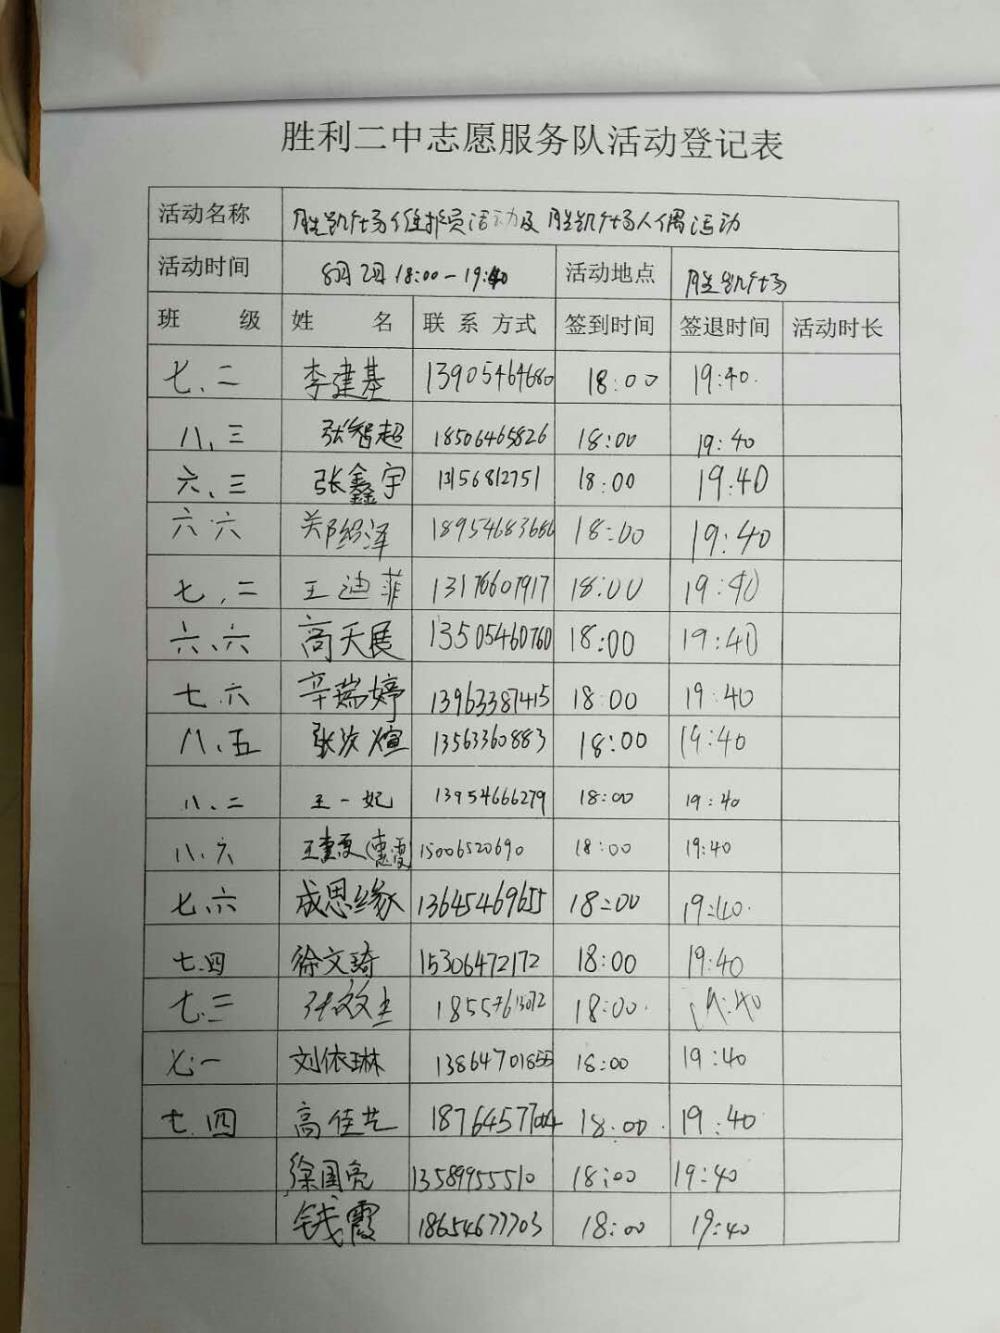 胜利二中志愿服务队活动登记表
活动名称 胜凯广场值推员活动及胜凯广场人偶活动
活动时间 8月2日 18:00-19:40 活动地点 胜凯广场
班 级 姓 名 联系方式 签到时间 签退时间 活动时长
七、二 李建基 13905464680 18:00 19:40.
八、三 张智超 18506465826 18:00 19:40
六、三 张鑫宇 13156812751 18:00 19:40
六六 郑 泽 18954683686 18:00 19:40
七、二 王迪菲 13176607917 18:00 19:40
六、六 高天展 13505460760 18:00 19:40
七六 辛瑞婷 13963387415 18:00 19:40
八、五 张次煊 13563360883 18:00 19:40
八、二 王一妃 13954666279 18:00 19:40
八、六 王惠 15006520690 18:00 19:40
七、六 成思缘 13645469655 18:00 19:40.
七、四 徐文琦 15306472172 18:00 19:40
七、三 张效 18:00. 19:40
七、一 刘依琳 13864701855 18:00 19:40
七、四 高佳艺 18:00. 19:40
徐国亮 13589955510 18:00 19:40
钱霞 18654677703 18:00 19:40